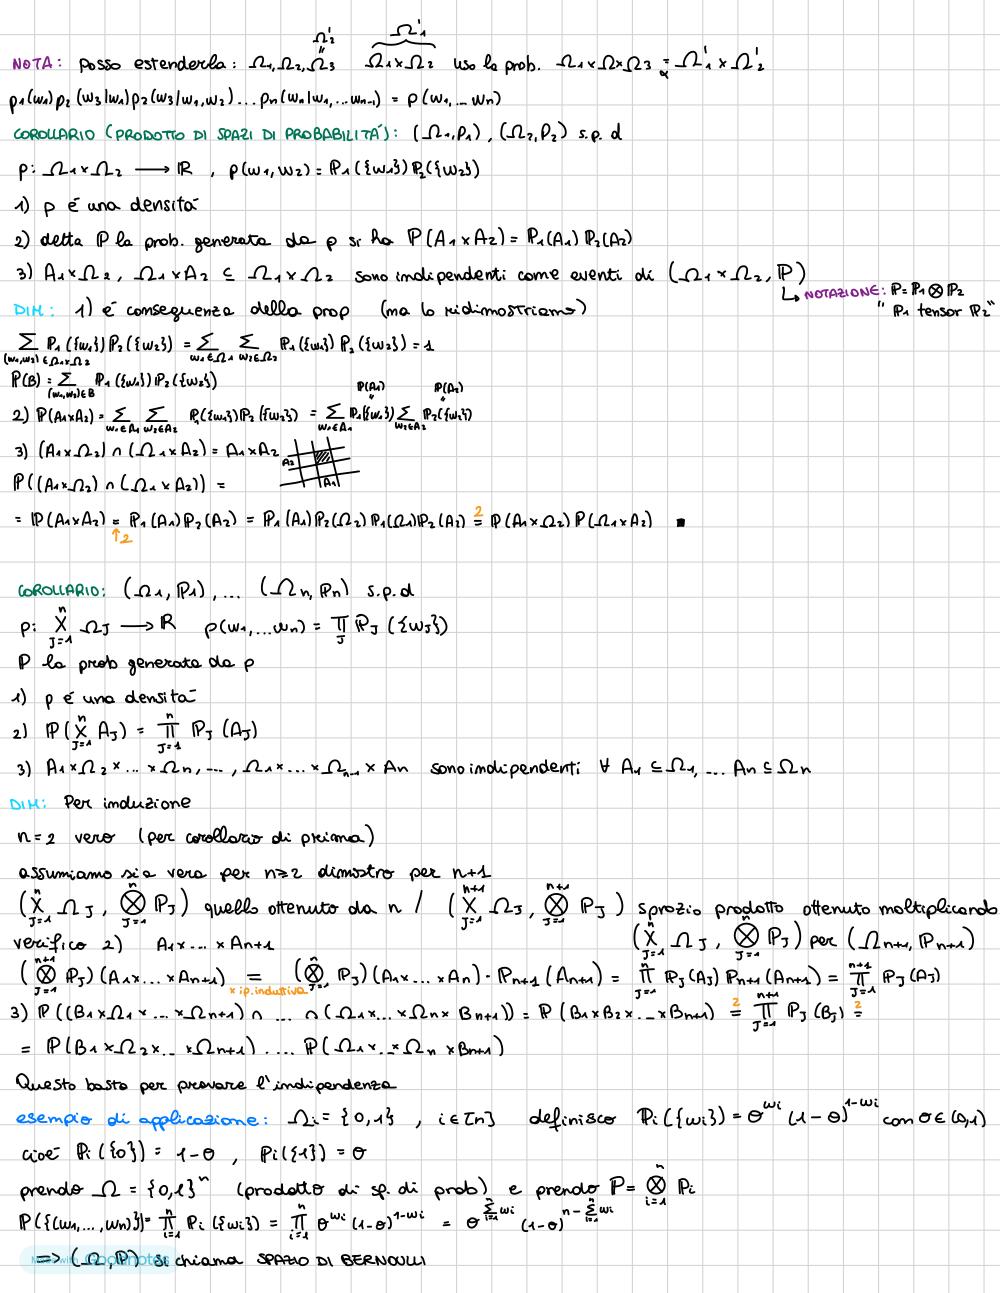 NOTA: posso estenderla: Ω₁,Ω₂,Ω₃ (Ω'₂ = Ω₃) Ω₁×Ω₂ (Ω'₁) uso la prob. Ω₁×Ω×Ω₃ = Ω'₁×Ω'₂
p₁(w₁)p₂(w₃|w₁)p₂(w₃|w₁,w₂)...pₙ(wₙ|w₁,...wₙ₋₁) = p(w₁,...wₙ)
COROLLARIO (PRODOTTO DI SPAZI DI PROBABILITÁ): (Ω₁,P₁), (Ω₂,P₂) s.p.d
p: Ω₁×Ω₂ ⟶ ℝ , p(w₁,w₂) = ℙ₁({w₁})ℙ₂({w₂})
1) p é una densitá
2) detta ℙ la prob. generata da p si ha ℙ(A₁×A₂) = ℙ₁(A₁)ℙ₂(A₂)
3) A₁×Ω₂, Ω₁×A₂ ⊆ Ω₁×Ω₂ sono indipendenti come eventi di (Ω₁×Ω₂, ℙ)
↳ NOTAZIONE: ℙ=ℙ₁⊗ℙ₂
"ℙ₁ tensor ℙ₂"
DIM: 1) é conseguenza della prop (ma lo ridimostriamo)
∑_{(w₁,w₂)∈Ω₁×Ω₂} ℙ₁({w₁})ℙ₂({w₂}) = ∑_{w₁∈Ω₁} ∑_{w₂∈Ω₂} ℙ₁({w₁})ℙ₂({w₂}) = 1
ℙ(B) = ∑_{(w₁,w₂)∈B} ℙ₁({w₁})ℙ₂({w₂})
ℙ(A₁) ℙ(A₂)
2) ℙ(A₁×A₂) = ∑_{w₁∈A₁} ∑_{w₂∈A₂} ℙ₁({w₁})ℙ₂({w₂}) = ∑_{w₁∈A₁} ℙ₁({w₁}) ∑_{w₂∈A₂} ℙ₂({w₂})
3) (A₁×Ω₂) ∩ (Ω₁×A₂) = A₁×A₂ A₂ A₁
ℙ((A₁×Ω₂) ∩ (Ω₁×A₂)) =
= ℙ(A₁×A₂) = ℙ₁(A₁)ℙ₂(A₂) = ℙ₁(A₁)ℙ₂(Ω₂)ℙ₁(Ω₁)ℙ₂(A₂) =² ℙ(A₁×Ω₂)ℙ(Ω₁×A₂) ■
↑2
COROLLARIO: (Ω₁,ℙ₁),... (Ωₙ,ℙₙ) s.p.d
p: X_{J=1}^n Ω_J ⟶ ℝ p(w₁,...wₙ) = ∏_J ℙ_J({w_J})
ℙ la prob generata da p
1) p é una densitá
2) ℙ(X_{J=1}^n A_J) = ∏_{J=1}^n ℙ_J(A_J)
3) A₁×Ω₂×...×Ωₙ,...,Ω₁×...×Ωₙ₋₁×Aₙ sono indipendenti ∀ A₁⊆Ω₁,... Aₙ⊆Ωₙ
DIM: Per induzione
n=2 vero (per corollario di prima)
assumiamo sia vera per n≥2 dimostro per n+1
(X_{J=1}^n Ω_J, ⊗_{J=1}^n ℙ_J) quello ottenuto da n / (X_{J=1}^{n+1} Ω_J, ⊗_{J=1}^{n+1} ℙ_J) sprazio prodotto ottenuto moltiplicando
verifico 2) A₁×...×Aₙ₊₁ (X_{J=1}^n Ω_J, ⊗_{J=1}^n ℙ_J) per (Ωₙ₊₁,ℙₙ₊₁)
(⊗_{J=1}^{n+1} ℙ_J)(A₁×...×Aₙ₊₁) = (⊗_{J=1}^n ℙ_J)(A₁×...×Aₙ)·ℙₙ₊₁(Aₙ₊₁) = ∏_{J=1}^n ℙ_J(A_J)ℙₙ₊₁(Aₙ₊₁) = ∏_{J=1}^{n+1} ℙ_J(A_J)
× ip. induttiva
3) ℙ((B₁×Ω₁×...×Ωₙ₊₁) ∩ ... ∩ (Ω₁×...×Ωₙ×Bₙ₊₁)) = ℙ(B₁×B₂×...×Bₙ₊₁) =² ∏_{J=1}^{n+1} ℙ_J(B_J) =²
= ℙ(B₁×Ω₂×...×Ωₙ₊₁)....ℙ(Ω₁×...×Ωₙ×Bₙ₊₁)
Questo basta per provare l'indipendenza
esempio di applicazione: Ωᵢ={0,1} , i∈[n] definisco ℙᵢ({wᵢ}) = θ^{wᵢ}(1-θ)^{1-wᵢ} con θ∈(0,1)
cioé ℙᵢ({0}) = 1-θ , ℙᵢ({1}) = θ
prendo Ω={0,1}ⁿ (prodotto di sp. di prob) e prendo ℙ= ⊗_{i=1}^n ℙᵢ
ℙ({(w₁,...,wₙ)}) = ∏_{i=1}^n ℙᵢ({wᵢ}) = ∏_{i=1}^n θ^{wᵢ}(1-θ)^{1-wᵢ} = θ^{∑_{i=1}^n wᵢ} (1-θ)^{n-∑_{i=1}^n wᵢ}
⟹ (Ω,ℙ) si chiama SPAZIO DI BERNOULLI
Made with Goodnotes